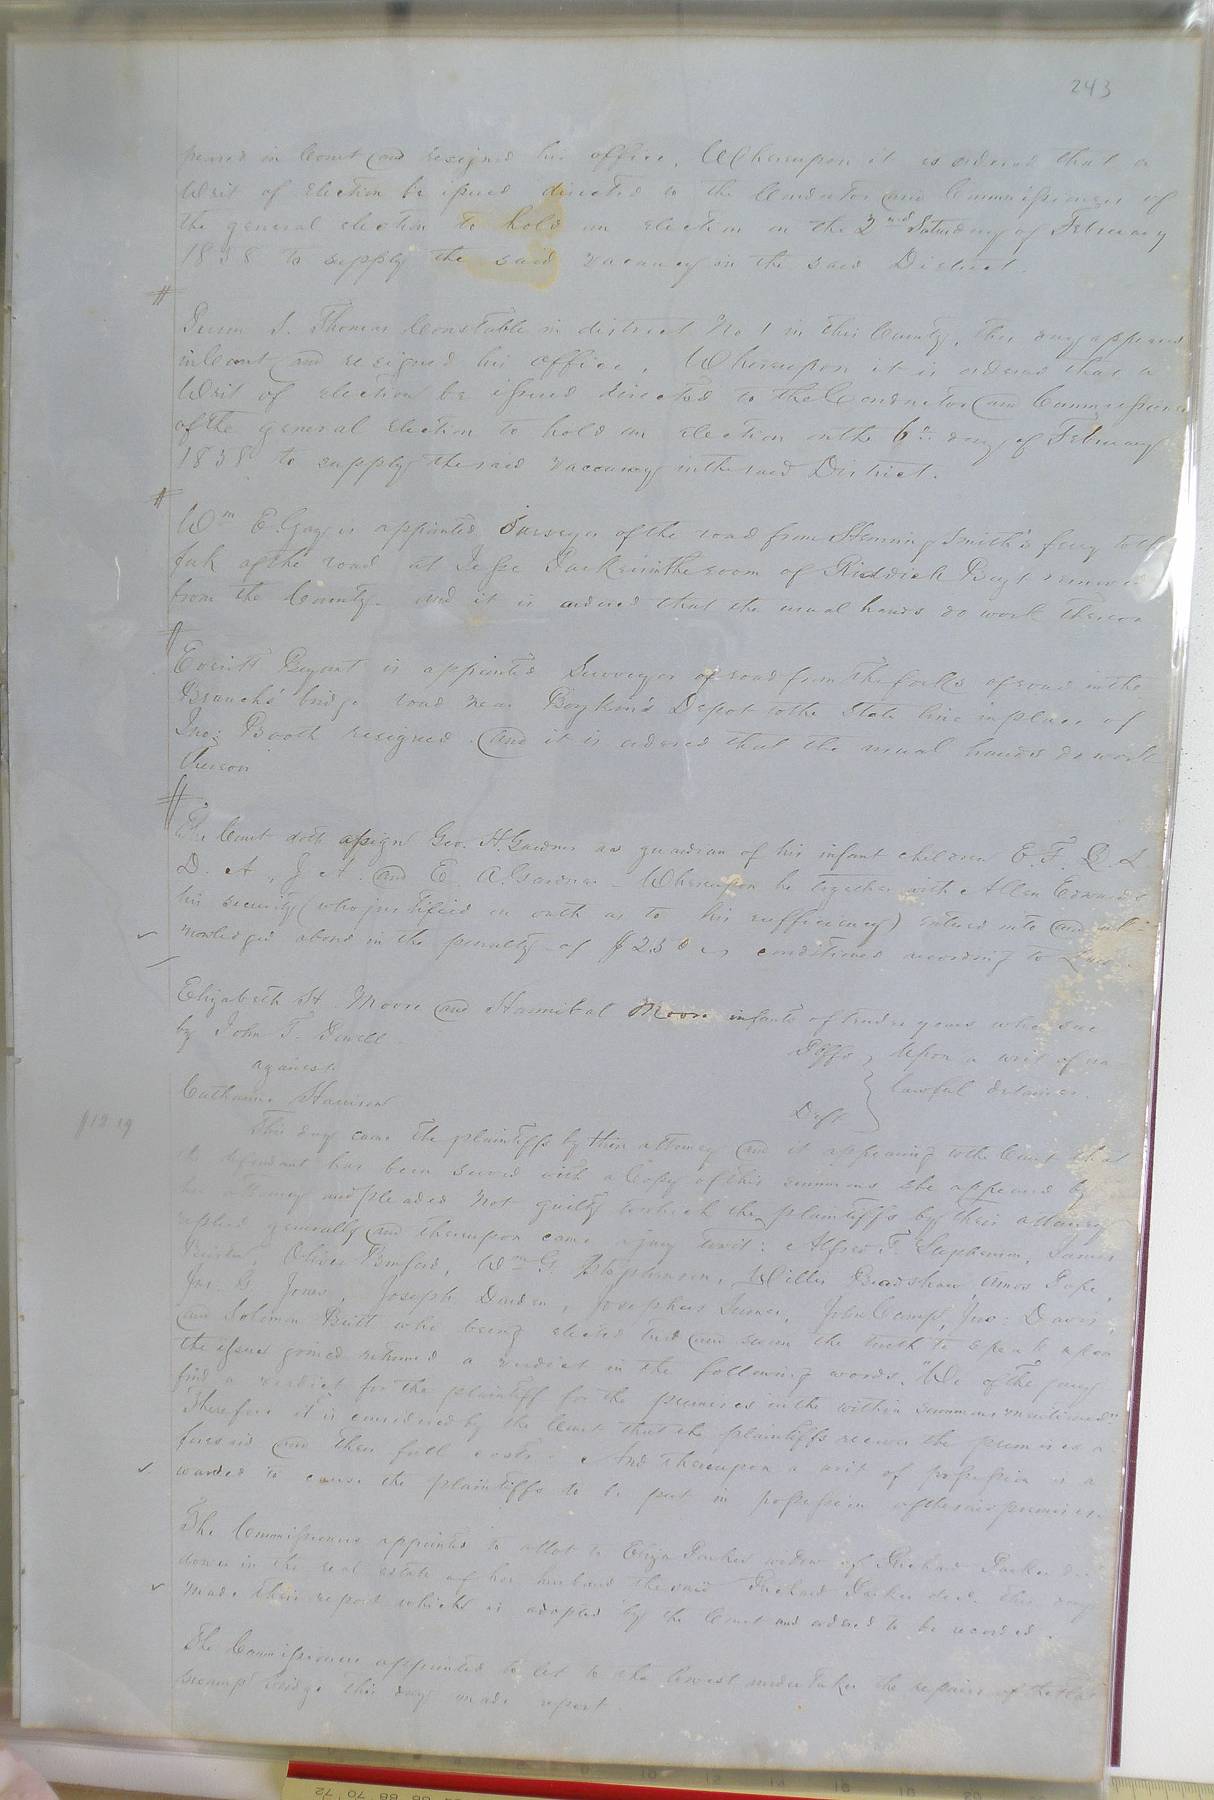 243
peared in Court and resigned his office, Whereupon it is ordered that a
Writ of election be issued directed to the Conductor and Commissioners of
the general election to hold an election on the 2nd Saturday of February
1858 to supply the said vacancy in the said District.
S. Thomas Constable in district No 1 in this County, this day appeared
in Court and resigned his office, Whereupon it is ordered that a
Writ of election be issued directed to the Conductor and Commissioners
of the general election to hold an election on the 6th day of February
1858 to supply the said vaccancy in the said District.
Wm E. Gay is appointed Surveyor of the road from Henning Smith's ferry to the
fork of the road at Jesse Parkers in the room of Riddick removed
from the County. and it is ordered that the usual hands do work thereon
Everitt Bryant is appointed Surveyor of road from the forks of road in the
Branch's bridge road near Boykin's Depot to the State line in place of
Jno: Booth resigned. and it is ordered that the usual hands do work
thereon
The Court doth assign Geo. H. Gardner as guardian of his infant children E. F.
D. A., J. A. and E. A. Gardner - Whereupon he together with Allen Edwards
his security (who justified on oath as to his sufficiency) entered into and ack
nowledged a bond in the penalty of $ conditioned according to Law.
Elizabeth H. Moore and Hannibal Moore infants of tender years who sue
by John T. Sewell Plffs Upon a writ of un
against lawful detainer.
Catharine Harrison Deft
$12.19
This day came the plaintiffs by their attorney and it appearing to the Court that
the defendant has been served with a Copy of this summons she appeared by
her attorney and pleaded not guilty to which the plaintiffs by their attorney
replied generally and thereupon came a jury towit: Alfred F. Stephenson, James
Oliver Bunford, Wm G. Stephenson, Willis Bradshaw, Amos Pope,
Jno. G. Jones, Joseph Darden, Josephus Turner, John Camp, Jno: Davis,
and Solomon Britt who being elected tried and sworn the truth to speak upon
the issue joined returned a verdict in the following words. "We of the jury
find a verdict for the plaintiff for the premises in the within summons mentioned"
Therefore it is considered by the Court that the plaintiffs recover the premises a
foresaid and their full costs. And thereupon a writ of possession is a
warded to cause the plaintiffs to be put in possession of the said premises.
The Commissioners appointed to allot to Eliza Parker widow of Richard Parker decd
dower in the real estate of her husband the said Richard Parker decd. this day
made their report which is adopted by the Court and ordered to be recorded.
The Commissioners appointed to let to the lowest undertaker the repairs of the Flat
swamp bridge this day made report.